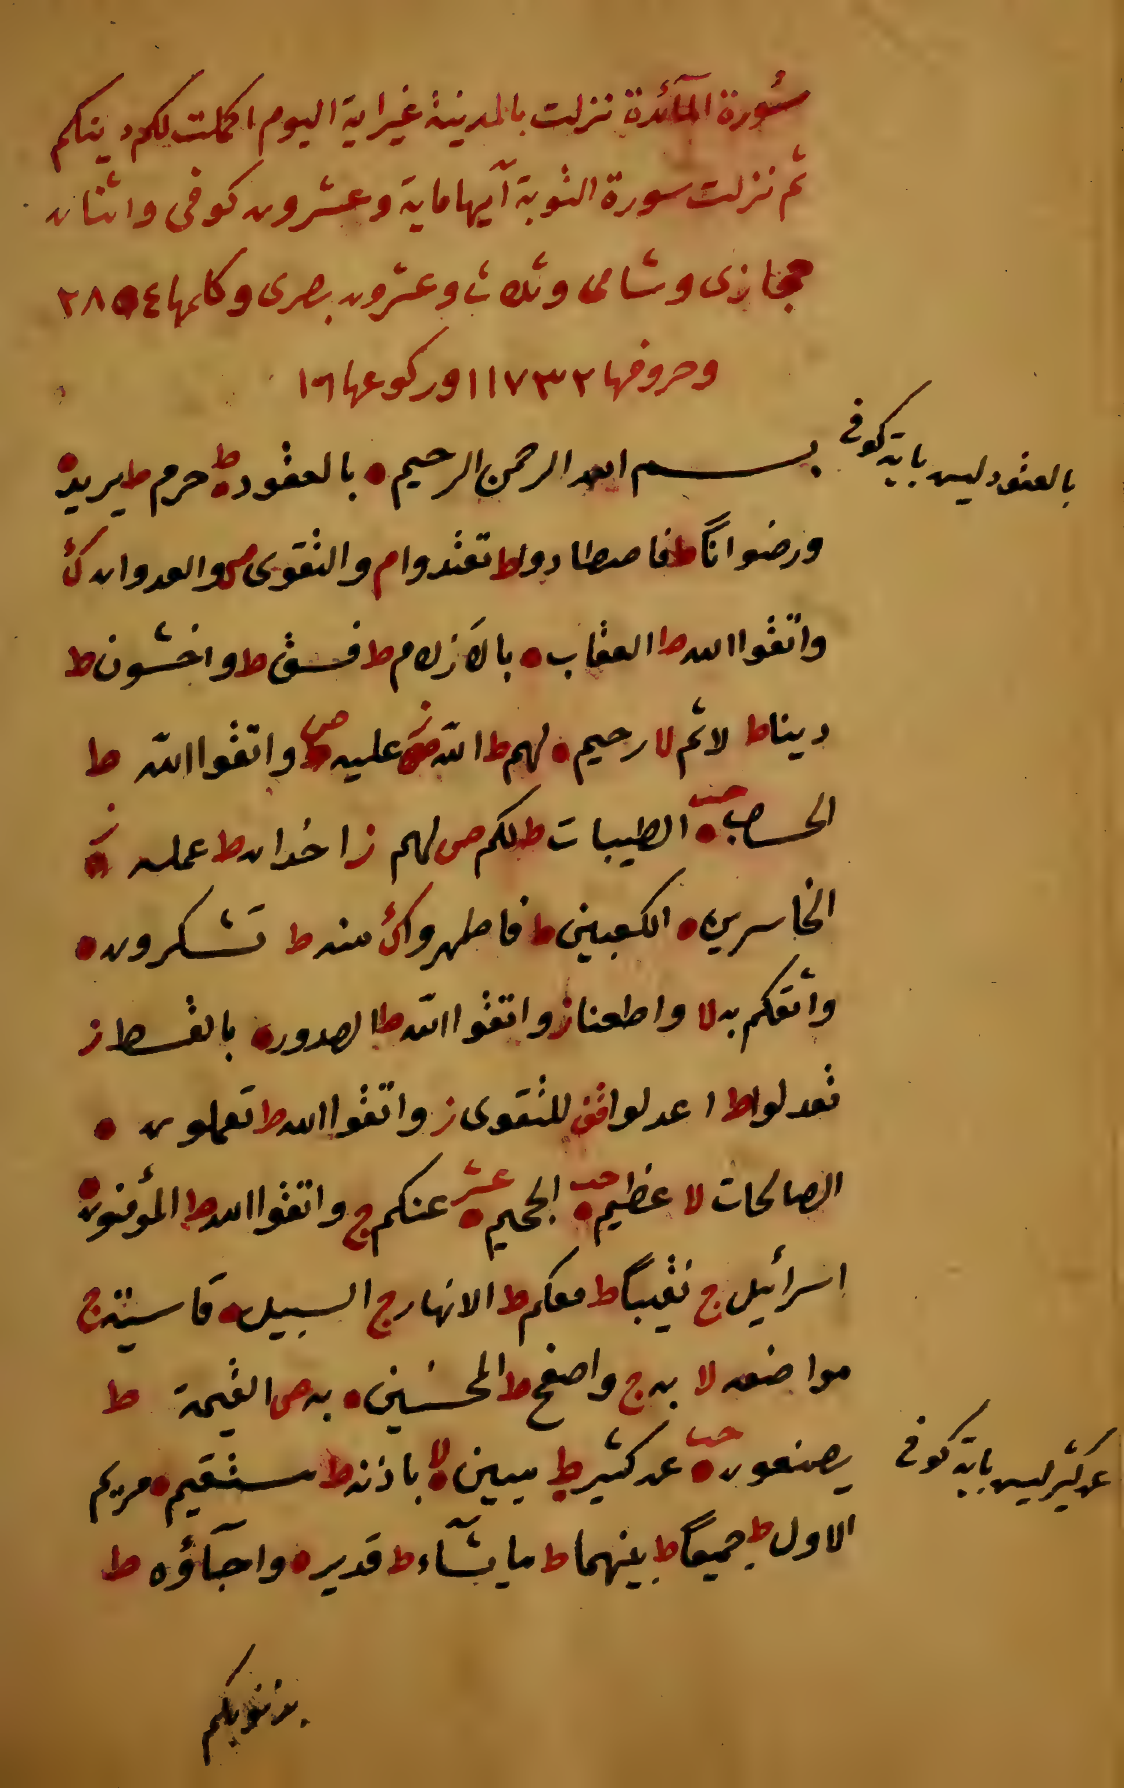 سورة المآئدة نزلت بالمدينة غير اية اليوم اكملت لكم دينكم
ثم نزلت سورة التوبة آيها ماية وعشرون كوفى واثنان
حجازى وشامى وثلاث وعشرون بصرى وكلمها ٢٨٥٤
وحروفها ١١٧٣٢ وركوعها ١٦
بسم الله الرحمن الرحيم ● بالعقود ط حرم ط يريد ●
بالعقود ليس باية كوفى
ورضوانًا ط فاصطادوا ط تعتدوا م والتقوى ص والعدوان ك
واتقوا الله ط العقاب ● بالازلام ط فسق ط واخشون ط
دينا ط لاثم لا رحيم ● لهم ط الله ز عليه ص واتقوا الله ط
الحساب ● الطيبات ط لكم ص لهم ز اخدان ط عمله ز
الخاسرين ● الكعبين ط فاطهروا ك منه ط تشكرون ●
واثقكم به لا واطعنا ز واتقوا الله ط الصدور ● بالقسط ز
تعدلوا ط اعدلوا قف للتقوى ز واتقوا الله ط تعملون ●
الصالحات لا عظيم ● الجحيم ● عشر عنكم ج واتقوا الله ط المؤمنون ●
اسرائيل ج نقيبًا ط معكم ط الانهار ج السبيل ● قاسية ج
مواضعه لا به ج واصفح ط المحسنين ● به ص القيمة ط
يصنعون ● عن كثير ط مبين ● لا باذنه ط مستقيم ● مريم
عن كثير ليس باية كوفى
الاول ط جميعًا ط بينهما ط ما يشآء ط قدير ● واحبآؤه ط
بذنوبكم